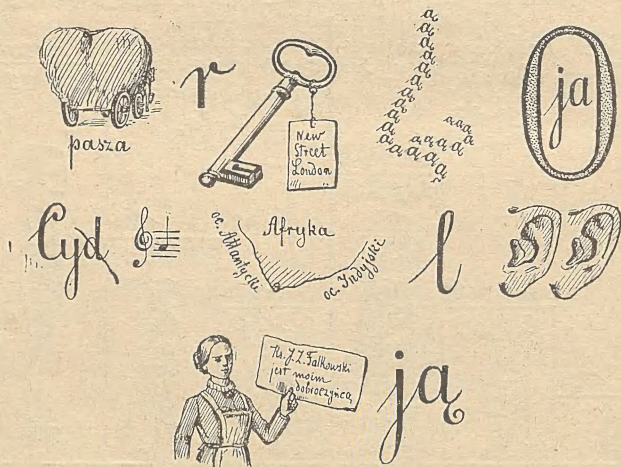 pasza
r
New
Street
London
ą
ą
ą
ą
ą
ą
ą
ą
ą
ą
ą
ą ą ą ą ą
ą ą ą
O
ja
Cyd
Afryka
oc. Atlantycki
oc. Indyjski
l
Ks. J. Z. Falkowski
jest moim
dobroczyńcą
ją